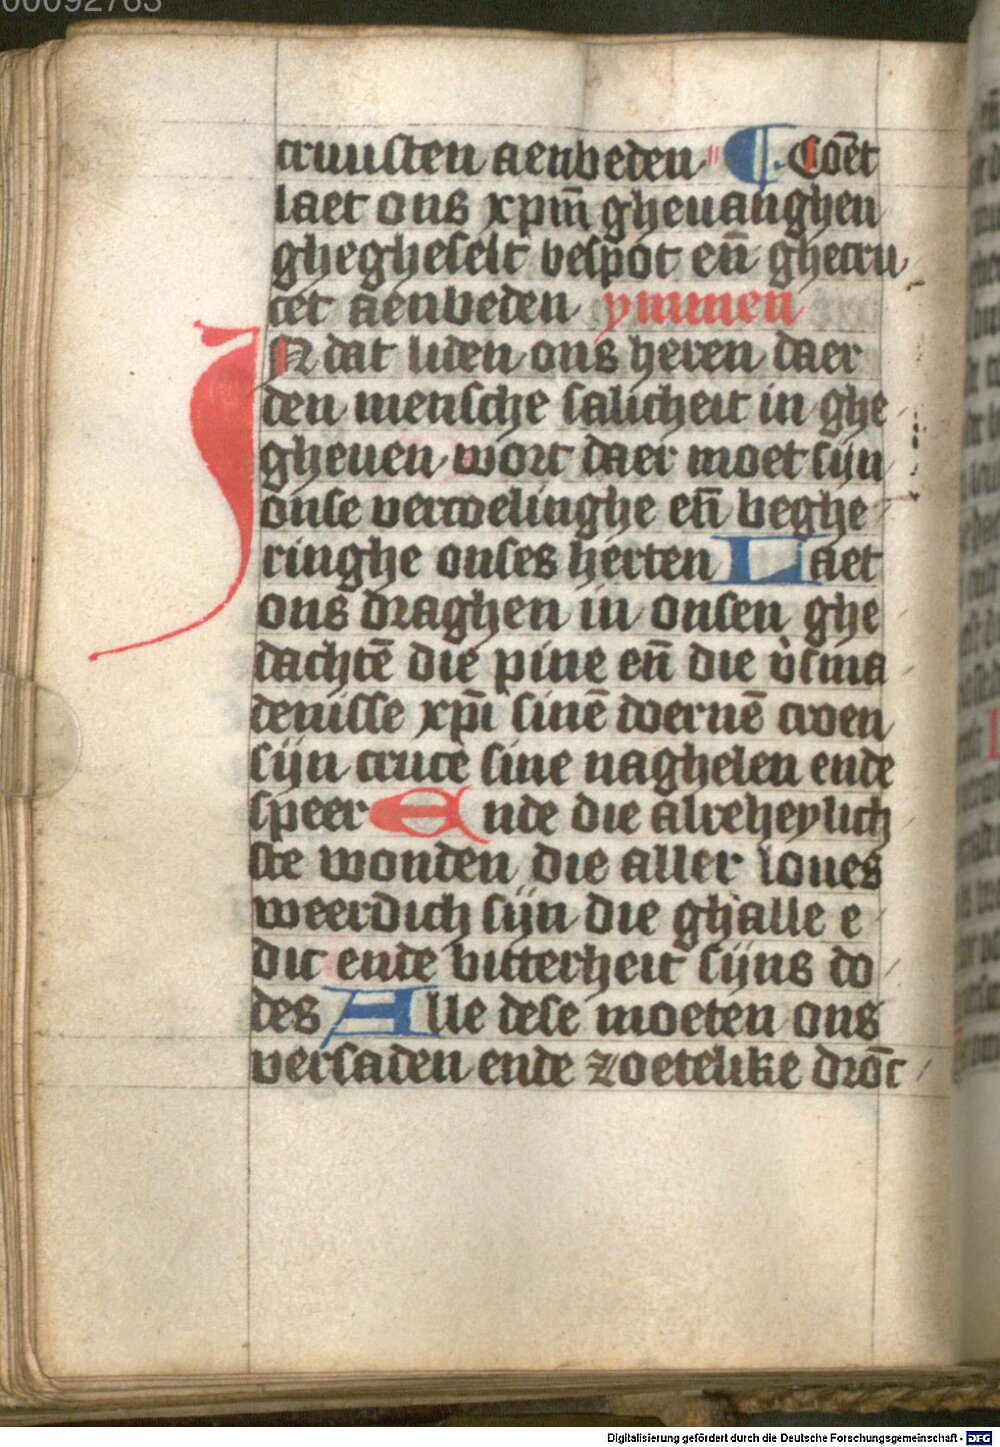 00092763
cruusten aenbeden ¶ Coēt
laet ons xpm̄ gheuanghen
ghegheselt bespot en̄ ghecru
cet aenbeden ymmen
IN dat liden ons heren daer
den mensche salicheit in ghe
gheuen wort daer moet sijn
onse verwelinghe en̄ beghe
ringhe onses herten Laet
ons draghen in onsen ghe
dachtē die pine en̄ die v̓sma
denisse xpī sinē doernē croen
sijn cruce sine naghelen ende
speer Ende die alreheylich
ste wonden die aller loues
weerdich sijn die ghalle e
dic ende bitterheit sijns do
des Alle dese moeten ons
versaden ende zoetelike drōc
Digitalisierung gefördert durch die Deutsche Forschungsgemeinschaft - DFG